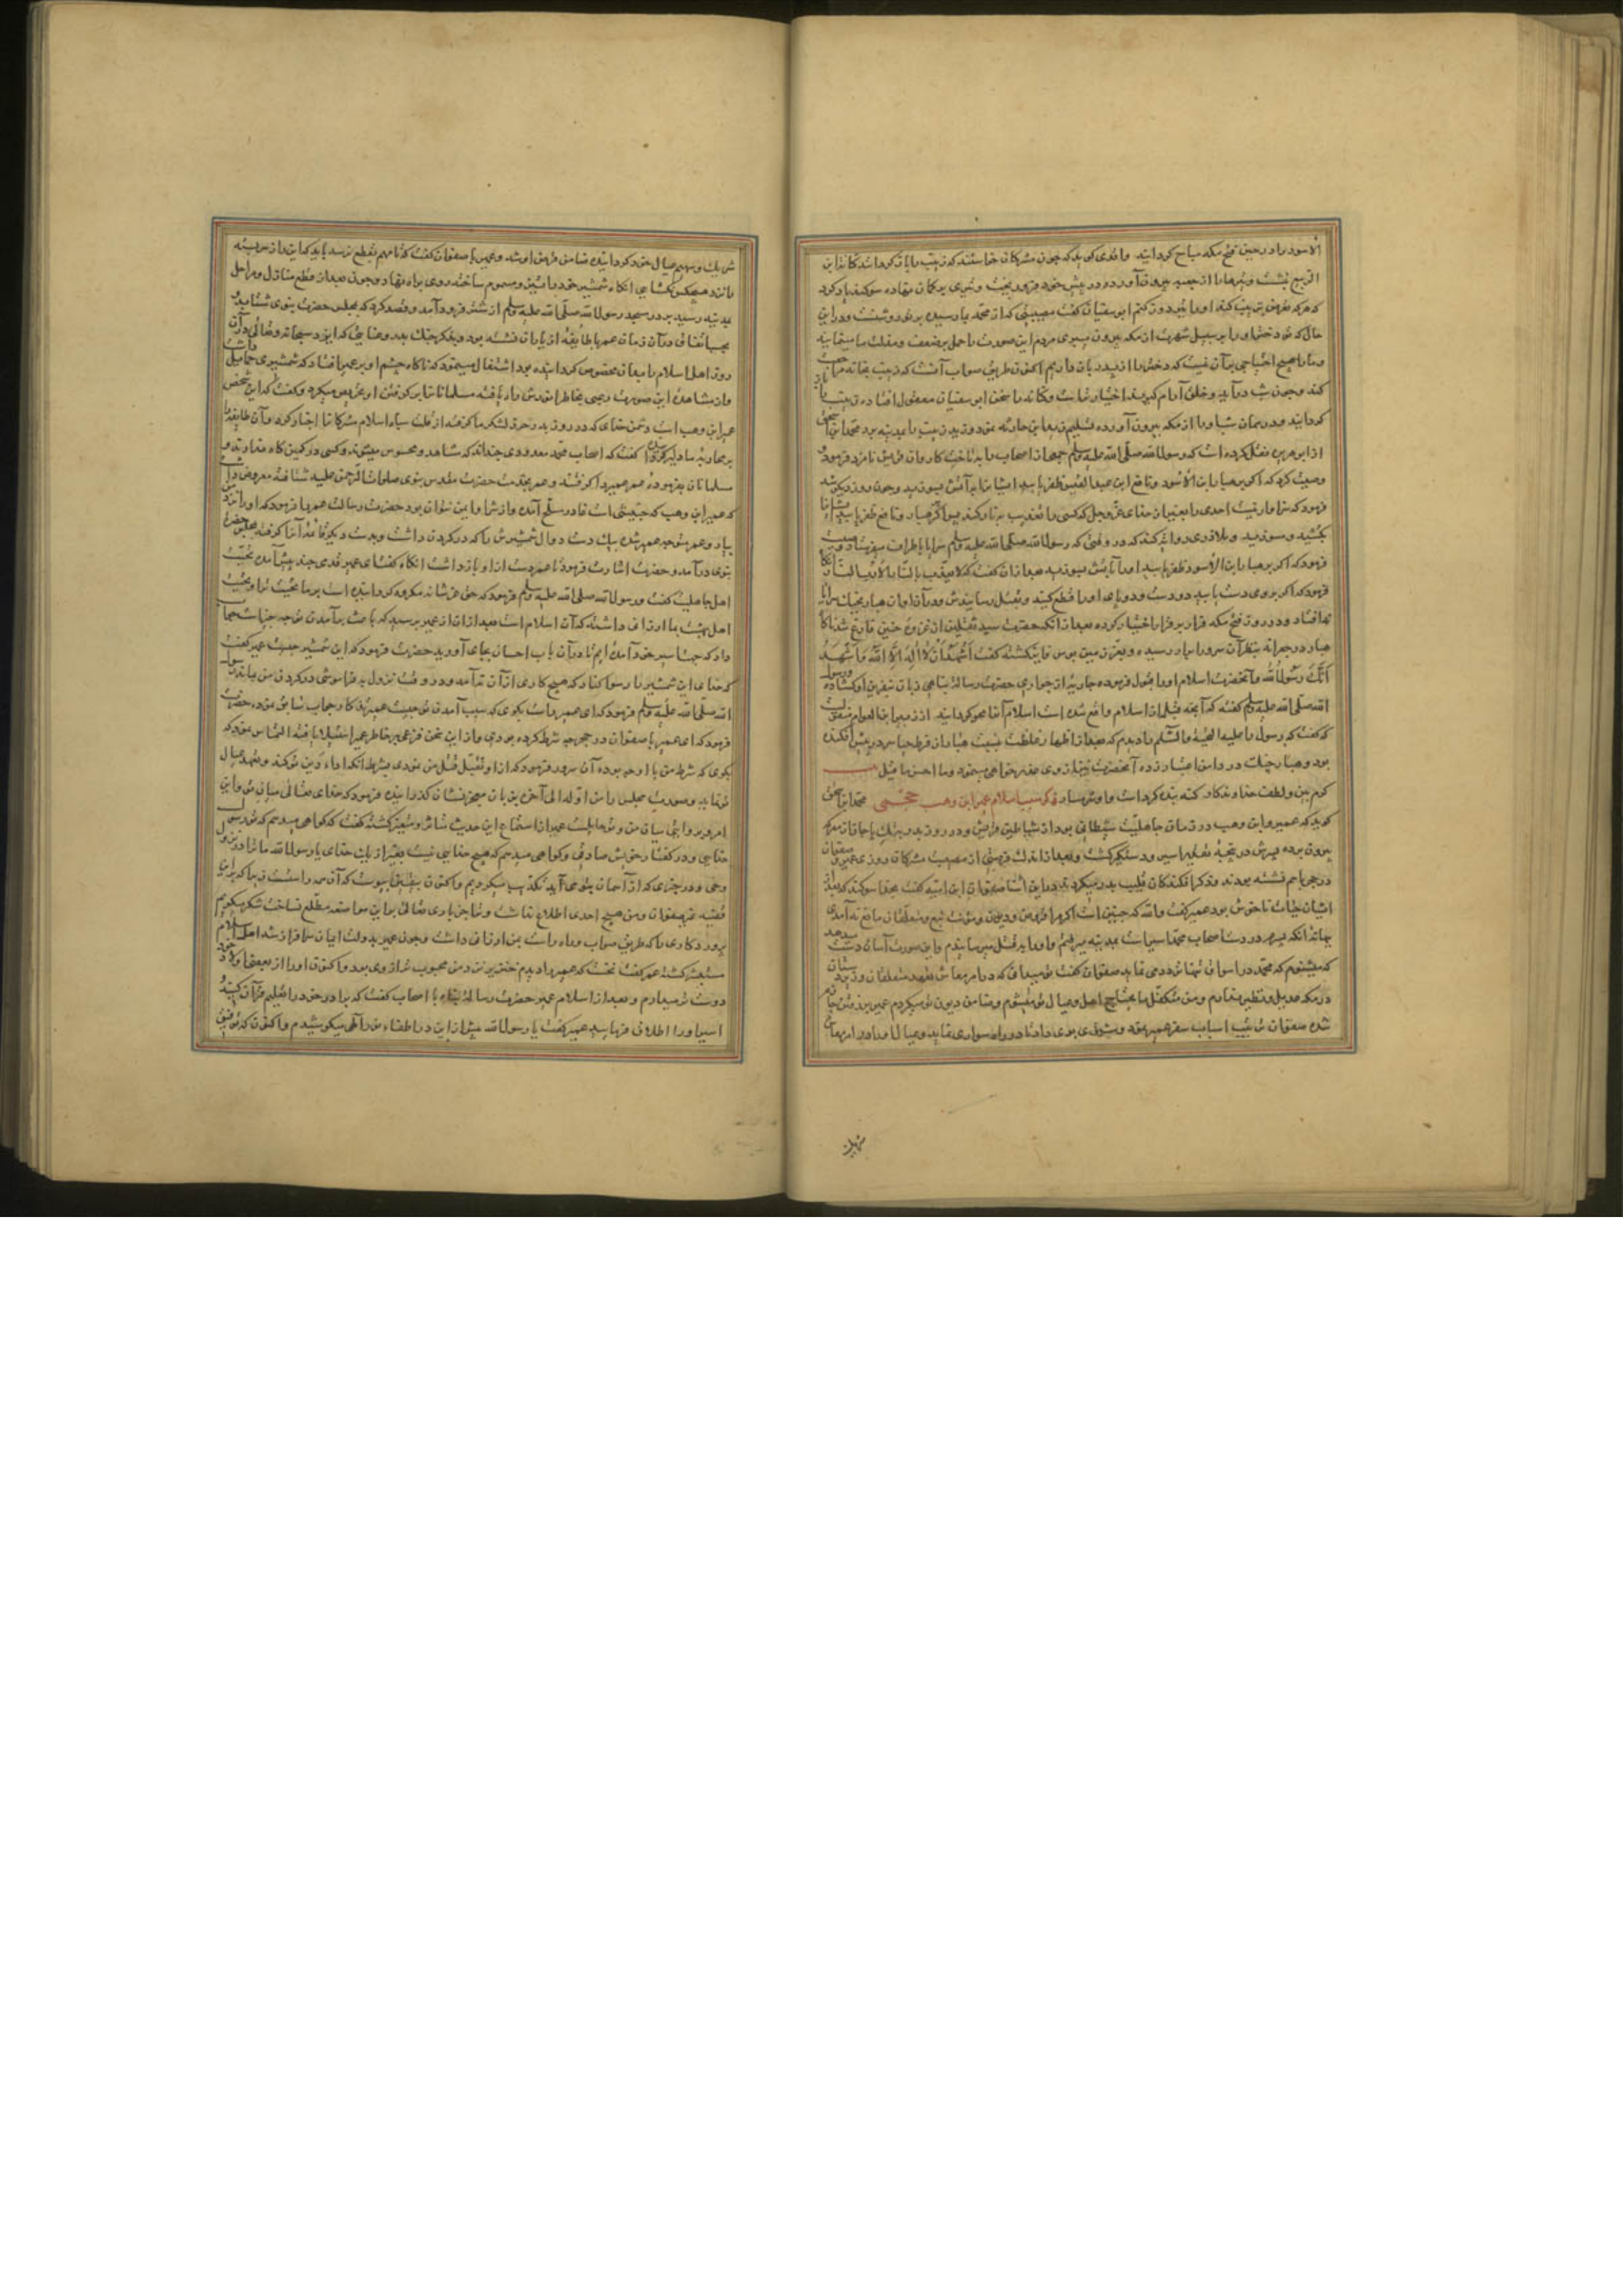 الاسود را در حین فتح مکه مباح کردانید و اقدی کوید که چون مشرکان خواستند که زینب را بازکردانند کنانه ابن
الربیع و تیرها را از جعبه بیرون آورده در پیش خود فرو ریخت و تیری بر کمان نهاده سوکند یاد کرد
که هر که تعرض زینب کند او را بدوزم ابو سفیان کفت مصیبتی که از محمد بما رسیده بر تو روشنست و در این
حال که تو دختر او را بر سبیل شهرت از مکه بیرون میبری مردم این صورت را حمل بر ضعف و مذلت ما مینمایند
و ما را هیچ احتیاجی بآن نیست که دخترش را از پدر باز داریم اکنون طریق صواب آنست که زینب بخانه
کند و چون شب درآید و خلق آرام کیرند اختیار تراست و کنانه را سخن ابو سفیان معقول افتاده زینب را باز
کردانید و در همان شب او را از مکه بیرون آورده تسلیم زید ابن حارثه نمود و زید زینب را بمدینه برد محمد ابن اسحق
از ابو هریره نقل کرده است که رسول الله صلی الله علیه وسلم جمعی از اصحاب را به تاخت کاروان قریش نامزد فرمود و
وصیت کرد که اکر بر هبار ابن الاسود و نافع ابن عبد القیس ظفر یابید ایشان را به آتش بسوزید و چون روز دیکر شد
فرمود که سزاوار نیست احدی را بغیر از خدای عز و جل که کسی را تعذیب به نار کند پس اکر بر هبار و نافع ظفر یابید ایشانرا
بکشید و مسوزید و بروایتی که رسول الله صلی الله علیه وسلم سرایا باطراف میفرستاد
فرمود که اکر بر هبار ابن الاسود ظفر یابید او را بآتش بسوزید بعد از آن کفت که لا یعذب بالنار الا رب النار
فرمود که اکر بر وی دست یابید دو دست و دو پای او را قطع کنید و بقتل رسانیدش و در آن اوان هبار بچنک سرایا
نه افتاد و در روز فتح مکه فرار بر قرار اختیار کرده بعد از آنکه حضرت سید ثقلین از غزوه حنین فارغ شد ناکاه
هبار در جعرانه بنظر آن سرور رسیده و بعز زمین بوس فایز کشته کفت اشهد ان لا اله الا الله و اشهد
انک رسول الله و آنحضرت اسلام او را قبول فرموده حضرت رسالت پناهی زبان
الله صلی الله علیه وسلم کفته که آنچه قبل از اسلام واقع شده است اسلام آنرا محو کردانید از زبیر ابن العوام منقول است
که کفت که رسول را علیه التحیة والسلام را دیدم که بعد از اظهار غلظت نسبت هبار از فرط حیا سر در پیش افکنده
بود و هبار چنک در دامن اعتذار زده آنحضرت نیز از وی عذر خواهی مینمود و ما احسن ما قیل بیت
کرم بین و لطف خداوندکار کنه بنده کردست و او شرمسار ذکر سبب اسلام عمیر ابن وهب جمحی محمد ابن اسحق
کوید که عمیر ابن وهب در زمان جاهلیت شیطانی بود از شیاطین قریش و در روز بدر بزرک با جان از معرکه
بیرون برده پسرش در پنجه تقدیر اسیر و دستکیر کشت و بعد از اندک فرصتی از مصیبت مشرکان روزی عمیر و صفوان
در حجر باهم نشسته بودند و ذکر افکندکان قلیب بدر میکردند در این اثنا صفوان ابن امیه کفت بخدا سوکند که بعد از
ایشان حیات ناخوش بود عمیر کفت والله که چنین است اکر مرا قرض و دیون و مؤنت تبع و متعلقان مانع نه آمدی
بهانه آنکه پسرم در دست اصحاب محمد اسیر است بمدینه میرفتم و او را بقتل میرسانیدم و این صورت آسان دست میدهد
که میشنوم که محمد در اسواق تنها تردد می نماید صفوان کفت تو میدانی که در امر معاش و تعهد متعلقان و زیردستان
در مکه عدیل و نظیر ندارم و من متکفل ما یحتاج اهل و عیال تو میشوم و ضامن دیون تو میکردم عمیر بر رفتن جازم
شده صفوان ترتیب اسباب سفر عمیر نموده و شتری بوی داد تا در راه سواری نماید و عیال او را در امر معاش
شریک
شریک و سهیم عیال خود کردانیده ضامن قرض او شد و عمیر با صفوان کفت که تا مهم بقطع نرسد باید که این راز سربسته
ماند و بهیچکس نکشایی آنکاه شمشیر خود را تیز و مسموم ساخته روی براه نهاد و چون بعد از قطع منازل و مراحل
بمدینه رسید بر در مسجد رسول الله صلی الله علیه وسلم از شتر فرود آمد و قصد کرد که بمجلس حضرت نبوی شتابد و
بحسب اتفاق در آن زمان عمر با طایفه از یاران نشسته بود و ذکر جنک بدر و عنایتی که ایزد سبحانه و تعالی در آن
روز اهل اسلام را بدان مخصوص کردانیده بود اشتغال مینمود که ناکاه چشم او بر عمیر افتاد که شمشیری حمایل داشت
و از مشاهده این صورت رعبی بخاطر انورش راه یافته مسلمانان را بر کرفتن او تحریص میکرد و کفت که این شخص
عمیر ابن وهب است دشمن خدای که در روز بدر حزر لشکر ما کرفته از قلت سپاه اسلام مشرکان را اخبار کرد و آن طایفه را
بر محاربه ما دلیر کردانید و کفت که اصحاب محمد معدودی چنداند که مشاهد و محسوس میشوند و کسی در کمین کاه ندارند و
مسلمانان بفرموده عمر عمیر را کرفته و عمر بخدمت حضرت مقدس نبوی صلوات الرحمن علیه شتافته معروض داشت
که عمیر ابن وهب که خبیثی است غادر و سلاح آمده و از شر او ایمن نتوان بود حضرت رسالت عمر را فرمود که او را نزد من
بیار و عمر متوجه عمیر شده بیک دست دوال شمشیرش را که در کردن داشت و بدست دیکر قایمه آنرا کرفته بمجلس حضرت
نبوی درآمد و حضرت اشارت فرمود تا عمر دست از او باز داشت آنکاه کفت ای عمیر قدمی چند پیش آمده تحیت
اهل جاهلیت کفت و رسول الله صلی الله علیه وسلم فرمود که حق عز شانه مکروه کردانیده است بر ما تحیت ترا و تحیت
اهل بهشت بما ارزانی داشته که آن اسلام است بعد از آن از عمیر پرسید که باعث بر آمدن تو چه چیز است جواب
داد که جهت اسیر خود آمده ام تا در آن باب احسان بجای آورید حضرت فرمود که این شمشیر چیست عمیر کفت
که خدای این شمشیر را رسوا کناد که هیچ کاری از آن نه آمد و در وقت نزول بفراموشی در کردن من بماند رسول
الله صلی الله علیه وسلم فرمود که ای عمیر راست بکوی که سبب آمدن تو چیست عمیر همان جواب سابق نمود حضرت
فرمود که ای عمیر با صفوان در حجر چه شرط کرده بودی و از این سخن فزعی بر خاطر عمیر استیلا یافته التماس نمود که
بکوی که شرط من با او چه بوده آن سرور فرمود که از او تقبل قتل من نمودی بشرط آنکه اداء دین تو کند و تعهد عیال
تو نماید و صورت مجلس را من اوله الی آخره بزبان معجز نشان کذرانیده فرمود که خدای تعالی میان تو و این
امر میان من و تو حایلست عمیر از استماع این حدیث متاثر و متغیر کشته کفت که کواهی میدهم که تو رسول
خدایی و در کفتار خویش صادق و کواهی میدهم که هیچ خدایی نیست بغیر از یک خدای یا رسول الله ما ترا در نزول
وحی و در چیزی که از آسمان بتو می آید تکذیب میکردیم و اکنون بیقین پیوست که آن همه راست زیرا که بر این
قضیه غیر صفوان و من هیچ احدی اطلاع نداشت و تا حق باری تعالی بر این مواضعه مطلع نساخت شکر میکویم
پروردکاری را که طریق صواب و راه راست بمن ارزانی داشت و چون عمیر بدولت ایمان سرافراز شد اهل اسلام
مستبشر کشته عمر کفت نخست که عمیر را دیدم خنزیر نزد من محبوب تر از وی بود و اکنون او را از بعضی اولاد خود
دوست تر میدارم و بعد از اسلام عمیر حضرت رسالت پناه با اصحاب کفت که برادر خود را تعلیم قرآن کنید و
اسیر او را اطلاق فرمایید عمیر کفت یا رسول الله پیش از این در اطفاء نور الهی میکوشیدم و اکنون که توفیق